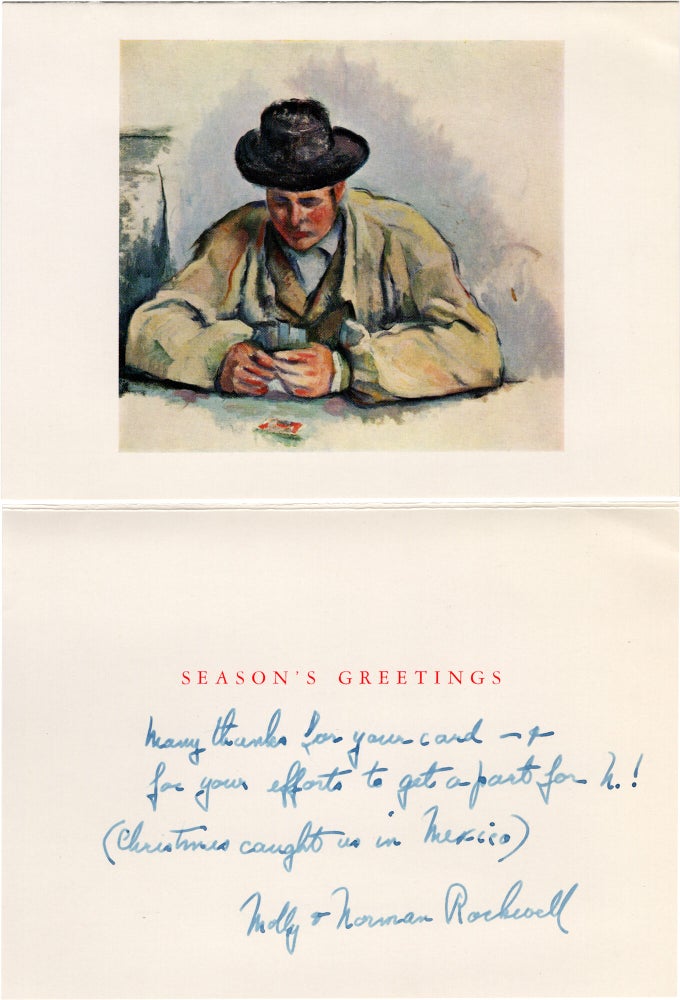 SEASON'S GREETINGS
Many thanks for your card – &
for your efforts to get a part for N.!
(Christmas caught us in Mexico)
Molly & Norman Rockwell